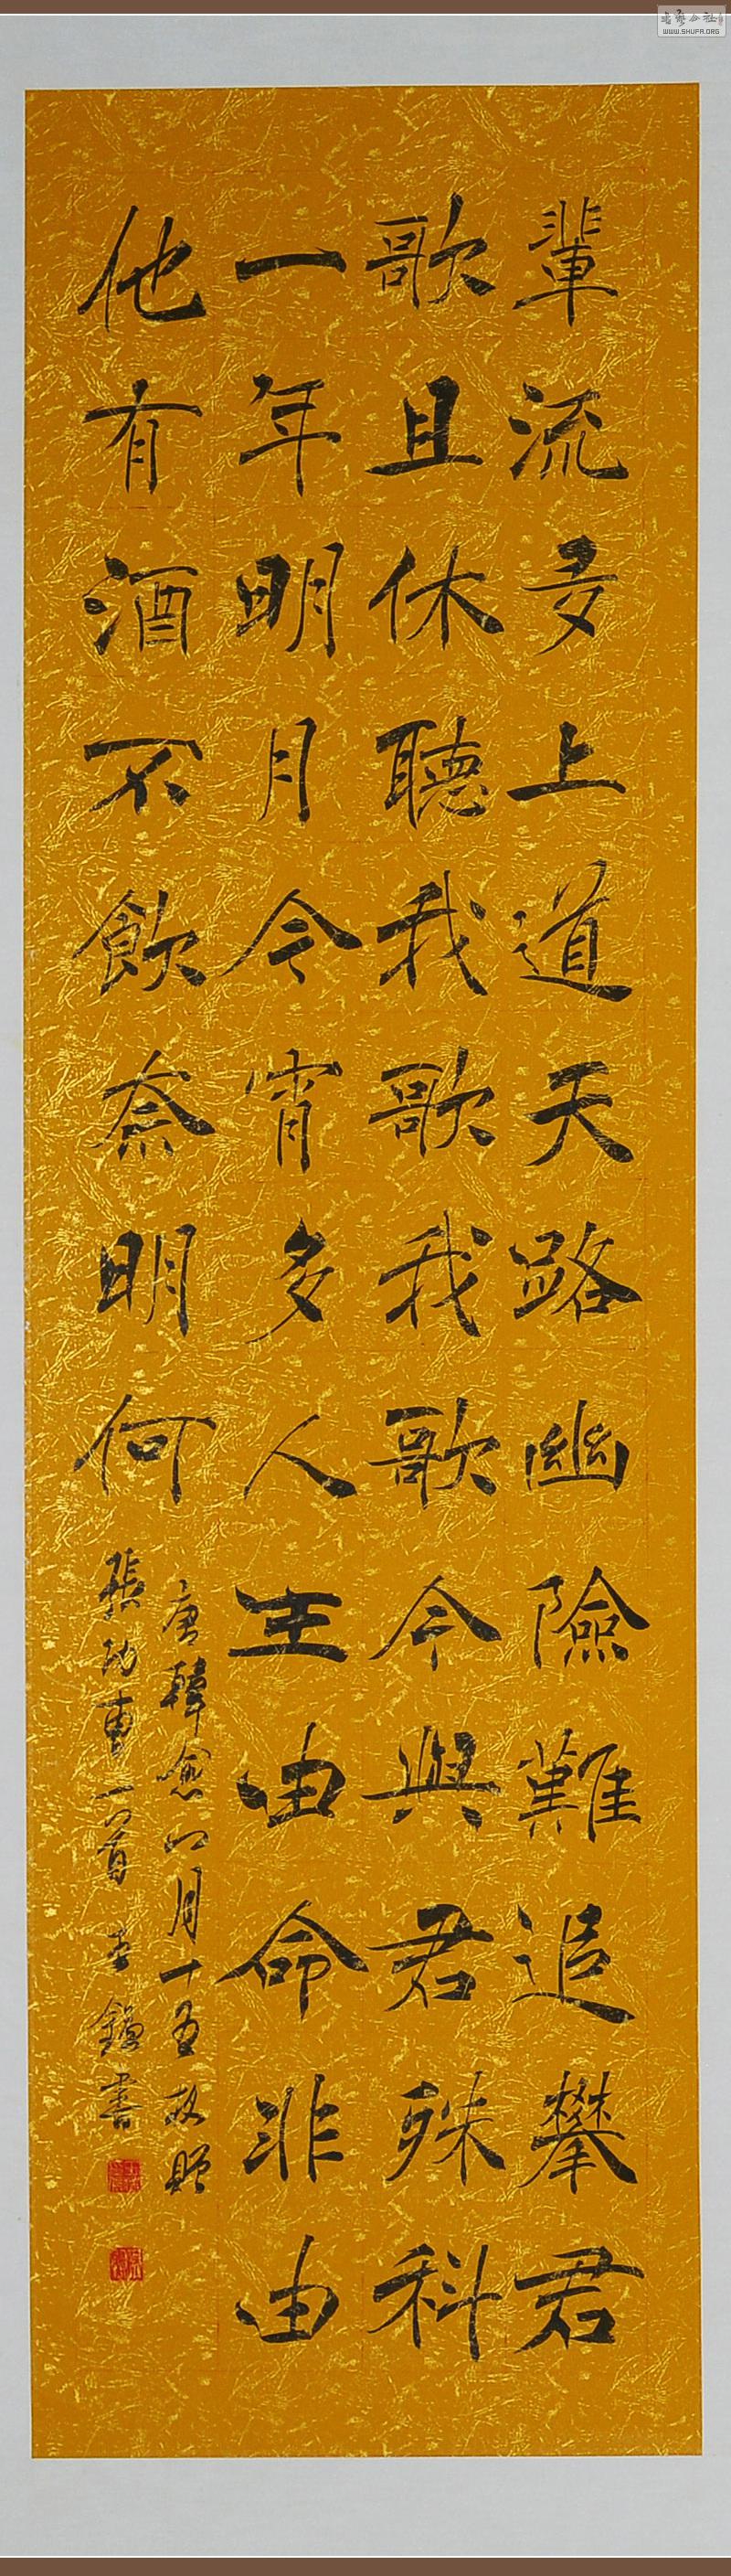 輩流多上道天路幽險難追攀君
歌且休聽我歌我歌今與君殊科
一年明月今宵多人生由命非由
他有酒不飲奈明何
唐韓愈八月十五夜贈
張功曹一首 李 書
書藝公社
WWW.SHUFA.ORG